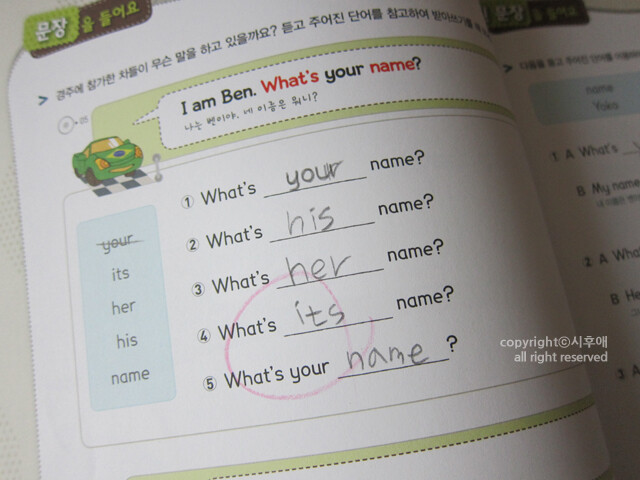 문장을 들어요
경주에 참가한 차들이 무슨 말을 하고 있을까요? 듣고 주어진 단어를 참고하여 받아쓰기를
05
I am Ben. What's your name?
나는 벤이야. 네 이름은 뭐니?
your
its
her
his
name
① What's your name?
② What's his name?
③ What's her name?
④ What's its name?
⑤ What's your name?
문장을 들어요
다음을 듣고 주어진 단어를
name
Yoko
1 A What's
B My name
2 A What
B He
3 A
copyright©시후애
all right reserved